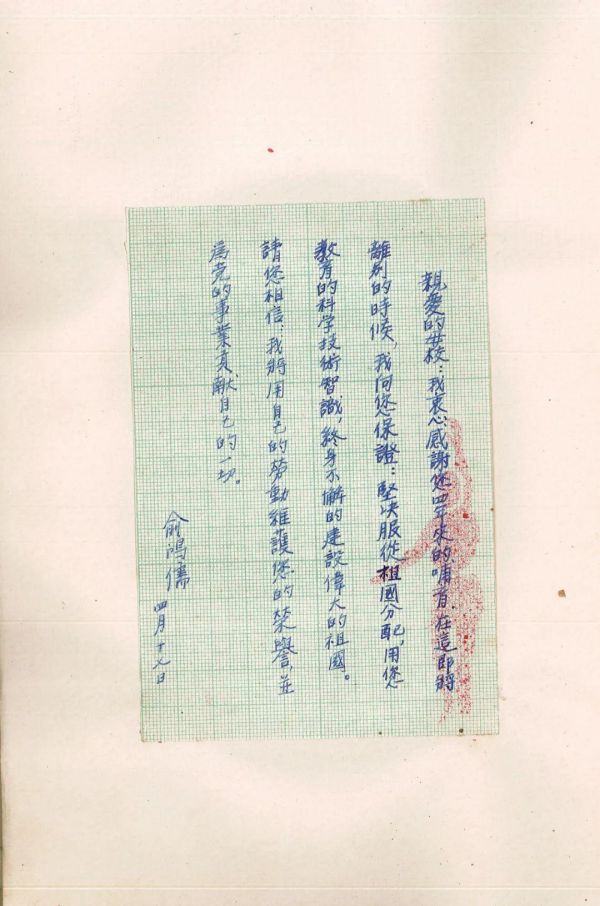 親愛的母校：我衷心感謝您四年來的哺育．在這即將
離別的時候，我向您保證：堅决服從祖國分配，用您
教育的科学技術智識，終身不懈的建設偉大的祖國。
請您相信：我將用自己的勞動維護您的榮譽，並
爲党的事業貢献自己的一切。
俞鴻儒
四月十七日